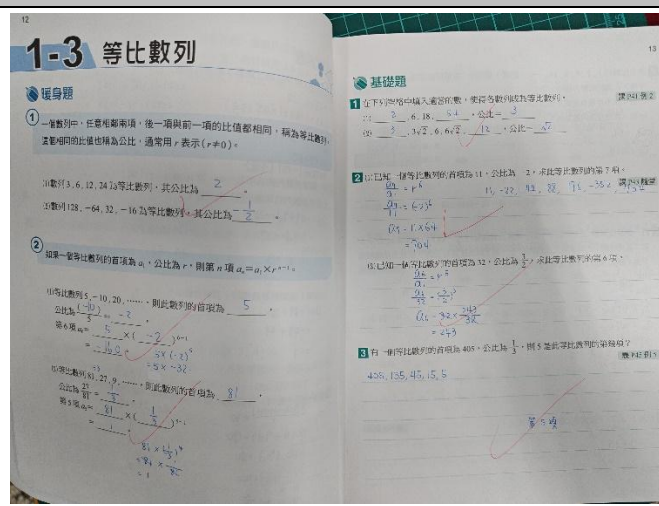 12
1-3 等比數列
暖身題
① 一個數列中,任意相鄰兩項,後一項與前一項的比值都相同,稱為等比數列,
這個相同的比值也稱為公比,通常用 r 表示(r≠0)。
(1)數列 3, 6, 12, 24 為等比數列,其公比為 2 。
(2)數列 128, -64, 32, -16 為等比數列,其公比為 -1/2 。
② 如果一個等比數列的首項為 a₁,公比為 r,則第 n 項 aₙ=a₁×rⁿ⁻¹。
(1)等比數列 5, -10, 20, ……,則此數列的首項為 5 。
公比為 (-10)/5 = -2 。
第 6 項 a₆= 5 ×( -2 )⁶⁻¹
= -160 。
5×(-2)⁵
=5×-32
(2)等比數列 81, 27, 9, ……,則此數列的首項為 81 。
公比為 27/81 = 1/3 。
第 5 項 a₅= 81 ×( 1/3 )⁵⁻¹
= 1 。
81×(1/3)⁴
=81×1/81
=1
13
基礎題
1 在下列空格中填入適當的數,使得各數列成為等比數列。
(1) 2 , 6, 18, 54 ,公比= 3
(2) 3 , 3√2, 6, 6√2, 12 ,公比= √2
2 (1)已知一個等比數列的首項為 11,公比為 -2,求此等比數列的第 7 項。
=704
(2)已知一個等比數列的首項為 32,公比為 3/2,求此等比數列的第 6 項。
a₆=32×243/32
=243
3 有一個等比數列的首項為 405,公比為 1/3,則 5 是此等比數列的第幾項?
405, 135, 45, 15, 5
第 5 項